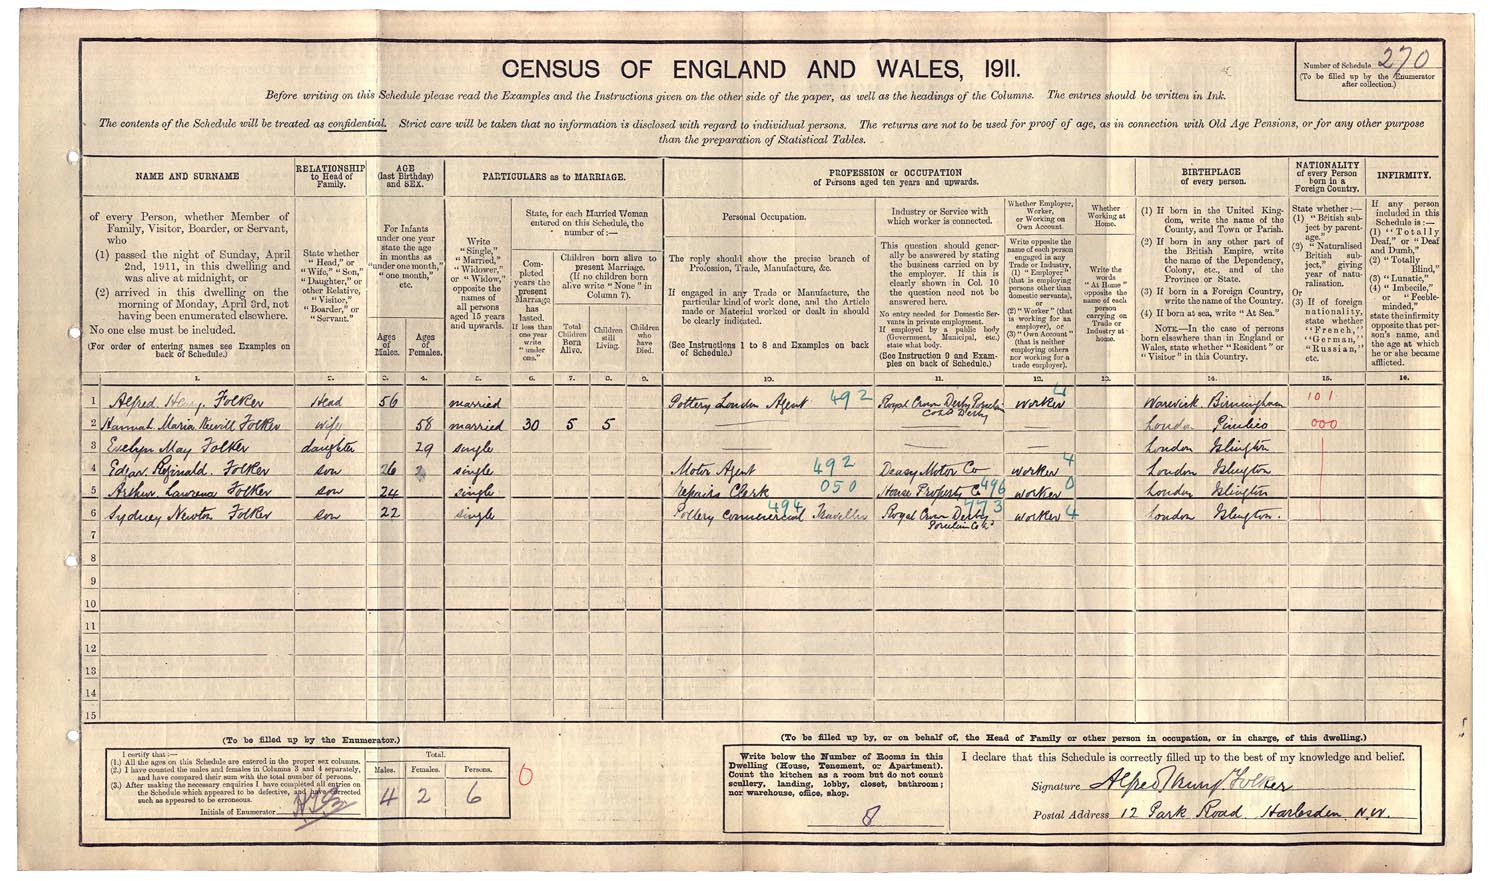 CENSUS OF ENGLAND AND WALES, 1911.
Number of Schedule 270
(To be filled up by the Enumerator
after collection.)
Before writing on this Schedule please read the Examples and the Instructions given on the other side of the paper, as well as the headings of the Columns. The entries should be written in Ink.
The contents of the Schedule will be treated as confidential. Strict care will be taken that no information is disclosed with regard to individual persons. The returns are not to be used for proof of age, as in connection with Old Age Pensions, or for any other purpose
than the preparation of Statistical Tables.
NAME AND SURNAME
of every Person, whether Member of
Family, Visitor, Boarder, or Servant,
who
(1) passed the night of Sunday, April
2nd, 1911, in this dwelling and
was alive at midnight, or
(2) arrived in this dwelling on the
morning of Monday, April 3rd, not
having been enumerated elsewhere.
No one else must be included.
(For order of entering names see Examples on
back of Schedule.)
RELATIONSHIP
to Head of
Family.
State whether
"Head," or
"Wife," "Son,"
"Daughter," or
other Relative,
"Visitor,"
"Boarder," or
"Servant."
AGE
(last Birthday)
and SEX.
For Infants
under one year
state the age
in months as
"under one month,"
"one month,"
etc.
Ages
of
Males.
Ages
of
Females.
PARTICULARS as to MARRIAGE.
Write
"Single,"
"Married,"
"Widower,"
or "Widow,"
opposite the
names of
all persons
aged 15 years
and upwards.
State, for each Married Woman
entered on this Schedule, the
number of:—
Com-
pleted
years the
present
Marriage
has
lasted.
If less than
one year
write
"under
one."
Children born alive to
present Marriage.
(If no children born
alive write "None" in
Column 7).
Total
Children
Born
Alive.
Children
still
Living.
Children
who
have
Died.
PROFESSION or OCCUPATION
of Persons aged ten years and upwards.
Personal Occupation.
The reply should show the precise branch of
Profession, Trade, Manufacture, &c.
If engaged in any Trade or Manufacture, the
particular kind of work done, and the Article
made or Material worked or dealt in should
be clearly indicated.
(See Instructions 1 to 8 and Examples on back
of Schedule.)
Industry or Service with
which worker is connected.
This question should gener-
ally be answered by stating
the business carried on by
the employer. If this is
clearly shown in Col. 10
the question need not be
answered here.
No entry needed for Domestic Ser-
vants in private employment.
If employed by a public body
(Government, Municipal, etc.)
state what body.
(See Instruction 9 and Exam-
ples on back of Schedule.)
Whether Employer,
Worker,
or Working on
Own Account.
Write opposite the
name of each person
engaged in any
Trade or Industry,
(1) "Employer"
(that is employing
persons other than
domestic servants),
or
(2) "Worker" (that
is working for an
employer), or
(3) "Own Account"
(that is neither
employing others
nor working for a
trade employer).
Whether
Working at
Home.
Write the
words
"At Home"
opposite the
name of each
person
carrying on
Trade or
Industry at
home.
BIRTHPLACE
of every person.
(1) If born in the United King-
dom, write the name of the
County, and Town or Parish.
(2) If born in any other part of
the British Empire, write
the name of the Dependency,
Colony, etc., and of the
Province or State.
(3) If born in a Foreign Country,
write the name of the Country.
(4) If born at sea, write "At Sea."
NOTE.—In the case of persons
born elsewhere than in England or
Wales, state whether "Resident" or
"Visitor" in this Country.
NATIONALITY
of every Person
born in a
Foreign Country.
State whether:—
(1) "British sub-
ject by parent-
age,"
(2) "Naturalised
British sub-
ject," giving
year of natu-
ralisation.
Or
(3) If of foreign
nationality,
state whether
"French,"
"German,"
"Russian,"
etc.
INFIRMITY.
If any person
included in this
Schedule is:—
(1) "Totally
Deaf," or "Deaf
and Dumb,"
(2) "Totally
Blind,"
(3) "Lunatic,"
(4) "Imbecile,"
or "Feeble-
minded,"
state the infirmity
opposite that per-
son's name, and
the age at which
he or she became
afflicted.
1. 2. 3. 4. 5. 6. 7. 8. 9. 10. 11. 12. 13. 14. 15. 16.
1 Alfred Henry Folker Head 56 married Pottery London Agent 492 Royal Crown Derby Porcelain Co Ld Derby worker 4 Warwick Birmingham 101
2 Hannah Maria Newill Folker wife 58 married 30 5 5 London Pimlico 000
3 Evelyn May Folker daughter 29 single London Islington
4 Edgar Reginald Folker son 26 single Motor Agent 492 Deasy Motor Co worker 4 London Islington
5 Arthur Lawrence Folker son 24 single Repairs Clerk 050 House Property Co 496 worker 0 London Islington
6 Sydney Newton Folker son 22 single Pottery Commercial Traveller 494 Royal Crown Derby Porcelain Co Ld 773 worker 4 London Islington.
7
8
9
10
11
12
13
14
15
(To be filled up by the Enumerator.)
I certify that:—
(1.) All the ages on this Schedule are entered in the proper sex columns.
(2.) I have counted the males and females in Columns 3 and 4 separately,
and have compared their sum with the total number of persons.
(3.) After making the necessary enquiries I have completed all entries on
the Schedule which appeared to be defective, and have corrected
such as appeared to be erroneous.
Initials of Enumerator
Total.
Males. Females. Persons.
4 2 6
0
(To be filled up by, or on behalf of, the Head of Family or other person in occupation, or in charge, of this dwelling.)
Write below the Number of Rooms in this
Dwelling (House, Tenement, or Apartment).
Count the kitchen as a room but do not count
scullery, landing, lobby, closet, bathroom;
nor warehouse, office, shop.
8
I declare that this Schedule is correctly filled up to the best of my knowledge and belief.
Signature Alfred Henry Folker
Postal Address 12 Park Road Harlesden N.W.